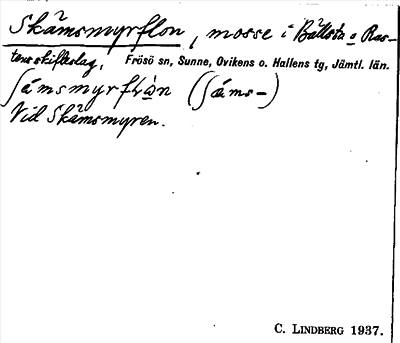 Skämsmyrflon, mosse i Bällsta o Ras-
tens skifteslag, Frösö sn, Sunne, Ovikens o. Hallens tg, Jämtl. län.
ʃámsmyrfɫὼn (ʃáms-)
Vid Skämsmyren.
C. LINDBERG 1937.